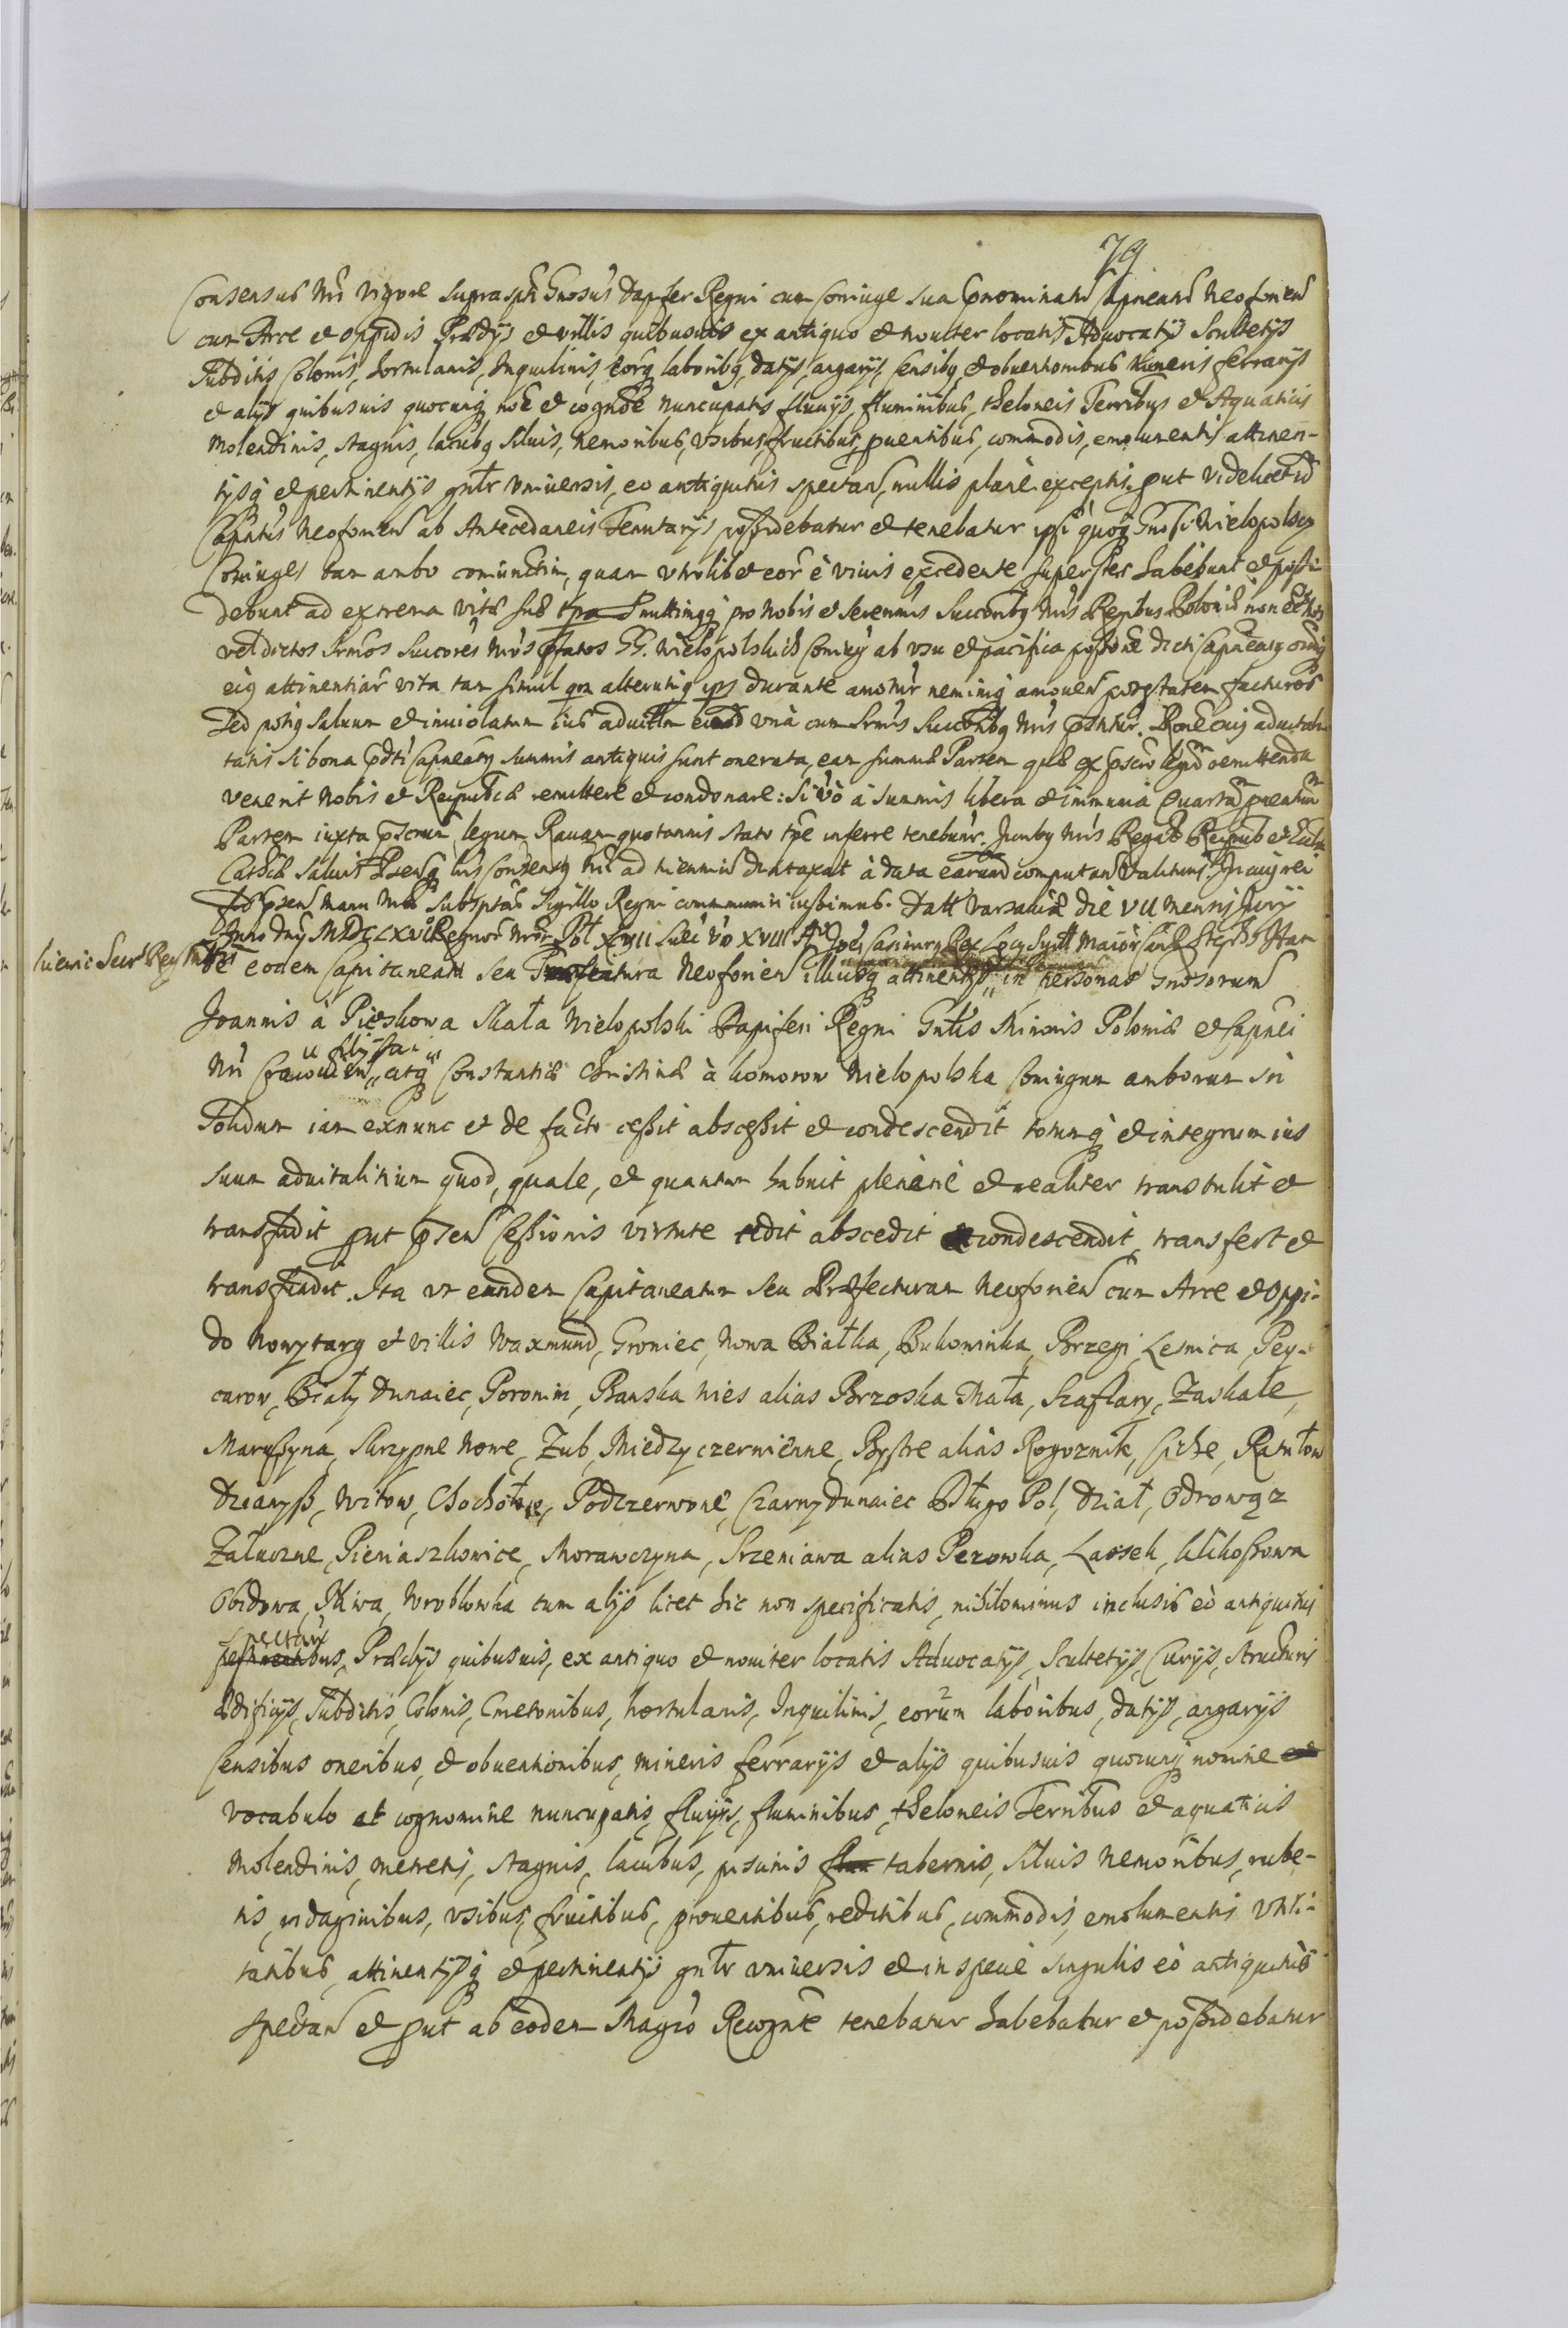 79
Consensus Nri vigore supraspti Gnosus Dapifer Regni cum Coniuge sua Capneatu Neoforien
cum Arce et Oppidis Prædijs et villis quibusuis ex antiquo et nouiter locatis Aduocatijs Scultetijs
Subditis Colonis, hortulanis, Inquilinis, eorq laboribq, datijs, angarijs, Censibq, et obuentionibus mineris ferrarijs
et alijs quibusuis quocunq noe et cognoe nuncupatis fluuijs, fluminibus, theloneis Terribus et Aquaticis
molendinis, stagnis, lacubq siluis, nemoribus, vsibus, fructibus, puentibus, commodis, emolumentis attinen-
tijsq et pertinentijs gntr vniuersis, eo antiquitus spectan, nullis planè exceptis, put videlicet id
Capntus Neoforien ab Antecedaneis Tenutarijs possidebatur et tenebatur ipsi quoq Gnosi Wielopolscy
Coniuges tam ambo coniunctim, quam vtrolibet eor è viuis excedente superstes habebunt et possi-
debunt ad extrema vitæ suæ pro Nobis et Serenmis Succoribq Nris Regibus Poloniæ non
vel dictos Srmos Succores Nros pfatos GG. Wielopolskich Coniuges ab vsu et pacifica possone dicti Capneatq omniq
eiq attinentiar vita tam simul qm alterutriq ips durante amotur neminiq amouen potestatem facturos
Sed potiq saluum et inuiolatum ius aduitle vnà cum Srmis Succoribq Nris
tatis si bona pdti Capneatq summis antiquis sunt onerata, eam summæ Partem quæ ex pscro legum remittenda
venerit Nobis et Reipublicæ remittere et condonare: Si vo à summis libera et immunia Quartam puentuum
Partem iuxta pscrum legum Rauam quotannis stato tpe inferre tenebunr. Juribq Nris Regalbq Reipub et Eccliæ
Cathcæ saluis. Psenq his Consensq Nri ad triennium duntaxat à data earum computan valituris. In cuiq rei
fid psen manu Nra subsptas Sigillo Regni communiri iussimus. Datt Varsauiæ die VII mensis Junij
Anno Dni MDCLXV Regnor Nror Pol XVII Suec vo XVIII Ao Joes Casimirq Rex Locq Sigill Maior Canc Stephq Han
kiewic Secr Reg Mtts
De eodem Capitaneatu seu Præfectura Neoforien illiusq attinentijs in personas Gnosorum
Joannis à Pieskowa Skała Wielopolski Dapiferi Regni Gntis Minoris Poloniæ et Capnei
Nri Cracouien, filij sui atq Constantiæ Christinæ à Komorow Wielopolska Coniugum amborum in
Solidum iam exnunc et de facto cessit abscessit et condescendit totumq et integrum ius
suum aduitalitium quod, quale, et quantum habuit plenariè et realiter transtulit et
transfudit put psen Cessionis virtute cedit abscedit condescendit, transfert et
transfundit. Ita vt eundem Capitaneatum seu Præfecturam Neoforien cum Arce et Oppi-
do Nowytarg et villis Waxmund, Groniec, Nowa Białka, Bukowinka, Brzegi, Lesnica, Pey-
carow, Biały Dunaiec, Poronin, Banska Wies alias Brzoska Mała, Szaflary, Zaskale,
Maruszyna, Skrzypne Nowe, Zub, Miedzyczerwienne, Bystre alias Rogoznik, Ciche, Ratułow
Dzianysz, Witow, Chochołow, Podczerwone, Czarny Dunaiec Długo Pol, Dział, Odrowąz
Załuczne, Pieniaszkowice, Morawczyna, Srzeniawa alias Pezowka, Lassek, Klikoszowa
Obidowa, Niwa, Wroblowka cum alijs licet hic non specificatis, nihilominus inclusis eò antiquitus
spectan, Prædijs quibusuis, ex antiquo et nouiter locatis Aduocatijs, Scultetijs, Curijs, structuris
ædificijs, Subditis, Colonis, Cmetonibus, hortulanis, Inquilinis, eorum laboribus, datijs, angarijs
Censibus oneribus, et obuentionibus, mineris ferrarijs et alijs quibusuis quocunq nomine
vocabulo et cognomine nuncupatis, fluuijs, fluminibus, theloneis Terribus et aquaticis
molendinis, metretis, stagnis, lacubus, piscinis tabernis, siluis nemoribus, rube-
tis, indaginibus, vsibus, fructibus, prouentibus, reditibus, commodis, emolumentis vtili-
tatibus, attinentijsq et pertinentijs gntr vniuersis et in specie singulis eò antiquitus
spectan et put ab eodem Magco Recognte tenebatur habebatur et possidebatur